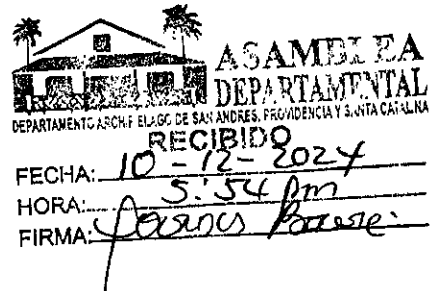 ASAMBLEA
DEPARTAMENTAL
DEPARTAMENTO ARCHIPIELAGO DE SAN ANDRES, PROVIDENCIA Y SANTA CATALINA
RECIBIDO
FECHA: 10-12-2024
HORA: 5:54 pm
FIRMA: